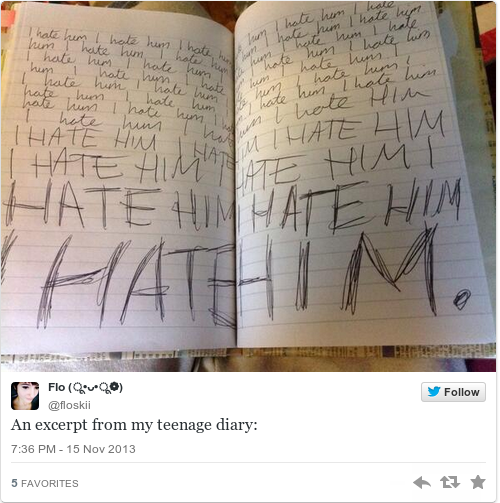 I hate him I hate him I hate him
him I hate him I hate him
him I hate him I hate him
him I hate him I hate
I hate him I hate him
hate him I hate him
hate him I hate him I
I hate him I hate
I HATE HIM I HATE
I HATE HIM I
HATE HIM
I HATE
him I hate him I hate
him I hate him I hate him
him I hate him I hate
hate him I hate him
hate him I hate him I
hate him I hate him
I hate HIM
I HATE HIM
HATE HIM I
I HATE HIM
HIM.
Flo
@floskii
Follow
An excerpt from my teenage diary:
7:36 PM - 15 Nov 2013
5 FAVORITES